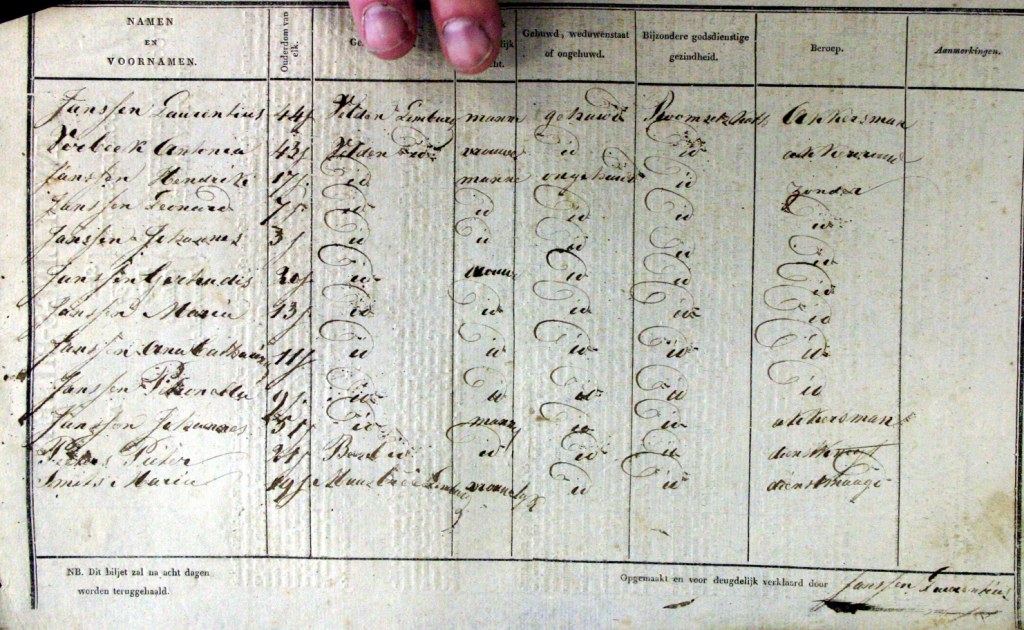 NAMEN EN VOORNAMEN. Ouderdom van elk. Gehuwd, weduwenstaat of ongehuwd. Bijzondere godsdienstige gezindheid. Beroep. Aanmerkingen.
Janssen Laurentius 44 j Velden Limburg manne gehuwd Akkersman
Verbeek Antonia 43 j Velden id vrouwe id id
Janssen Hendrik 17 j id manne ongehuwd id zonder
Janssen Leonard 7 j id id id id id
Janssen Johannes 3 j id id id id id
Janssen Gertrudis 20 j id vrouw id id id
Janssen Maria 13 j id id id id id
Janssen Anna Catharina 11 j id id id id id
Janssen Petronella 9 j id id id id id
Janssen Johannes 51 j id manne id id akkersman
Pieter 24 j id id id id
Smets Maria 19 j id id dienstmaagt
NB. Dit biljet zal na acht dagen
worden teruggehaald.
Opgemaakt en voor deugdelijk verklaard door Janssen Laurentius